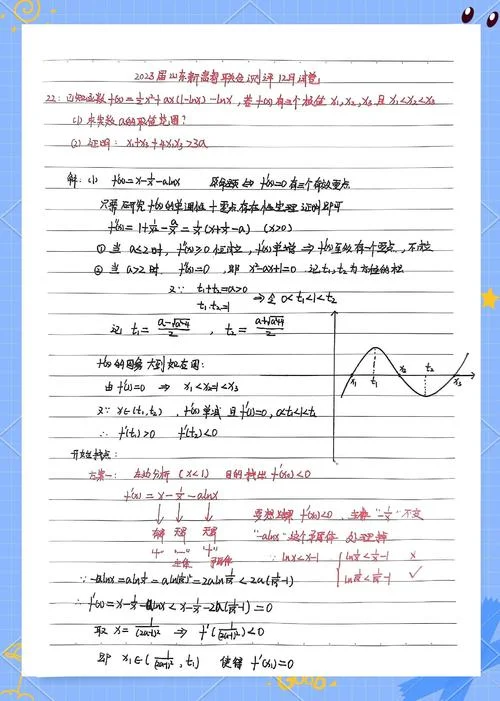 2023届山东新高考联合测评12月试卷
22: 已知函数 f(x)=½x²+ax(1-lnx)-lnx, 若f(x)有三个极值 x₁,x₂,x₃ 且 x₁<x₂<x₃
(1) 求实数a的取值范围?
(2) 证明: x₁+x₃+4x₁x₃>3a
解: (1) f'(x)=x-1/x-alnx 原命题 ⇔ f'(x)=0有三个零点
只需研究f'(x)的单调性+零点存在性定理 证明即可
f''(x)=1+1/x²-a/x=1/x(x+1/x-a) (x>0)
① 当 a≤2时, f''(x)≥0恒成立, f'(x)单增 ⇒ f'(x)至多有一个零点, 不成立
② 当 a>2时 f''(x)=0, 即 x²-ax+1=0 记t₁,t₂为方程的根
又∵ t₁+t₂=a>0
t₁·t₂=1 ⇒ 0<t₁<1<t₂
记 t₁=(a-√(a²-4))/2, t₂=(a+√(a²-4))/2
f'(x)的图象大致如右图:
由f'(1)=0 ⇒ x₁<x₂=1<x₃
x₁ t₁ x₂ t₂ x₃
又∵ x∈(t₁,t₂), f'(x)单减 且f'(1)=0, 0<t₁<1<t₂
∴ f'(t₁)>0 f'(t₂)<0
开始找点:
方案一: 左边分析 (x<1) 目的找出f'(x)<0
f'(x)=x-1/x-alnx
要想出现f'(x)<0, 主体"-1/x"不变
有界 无界 无界
"-alnx"这个
"+" "-" "+"
主体
∵ lnx<x-1
ln1/x<1/x-1 ×
ln1/√x<1/√x-1 ✓
∵ -alnx=aln1/x=aln(1/√x)²=2aln1/√x<2a(1/√x-1)
取 x=1/(2a+1)² ⇒ f'(1/(2a+1)²)<0
即 x₁∈(1/(2a+1)², t₁) 使得 f'(x₁)=0